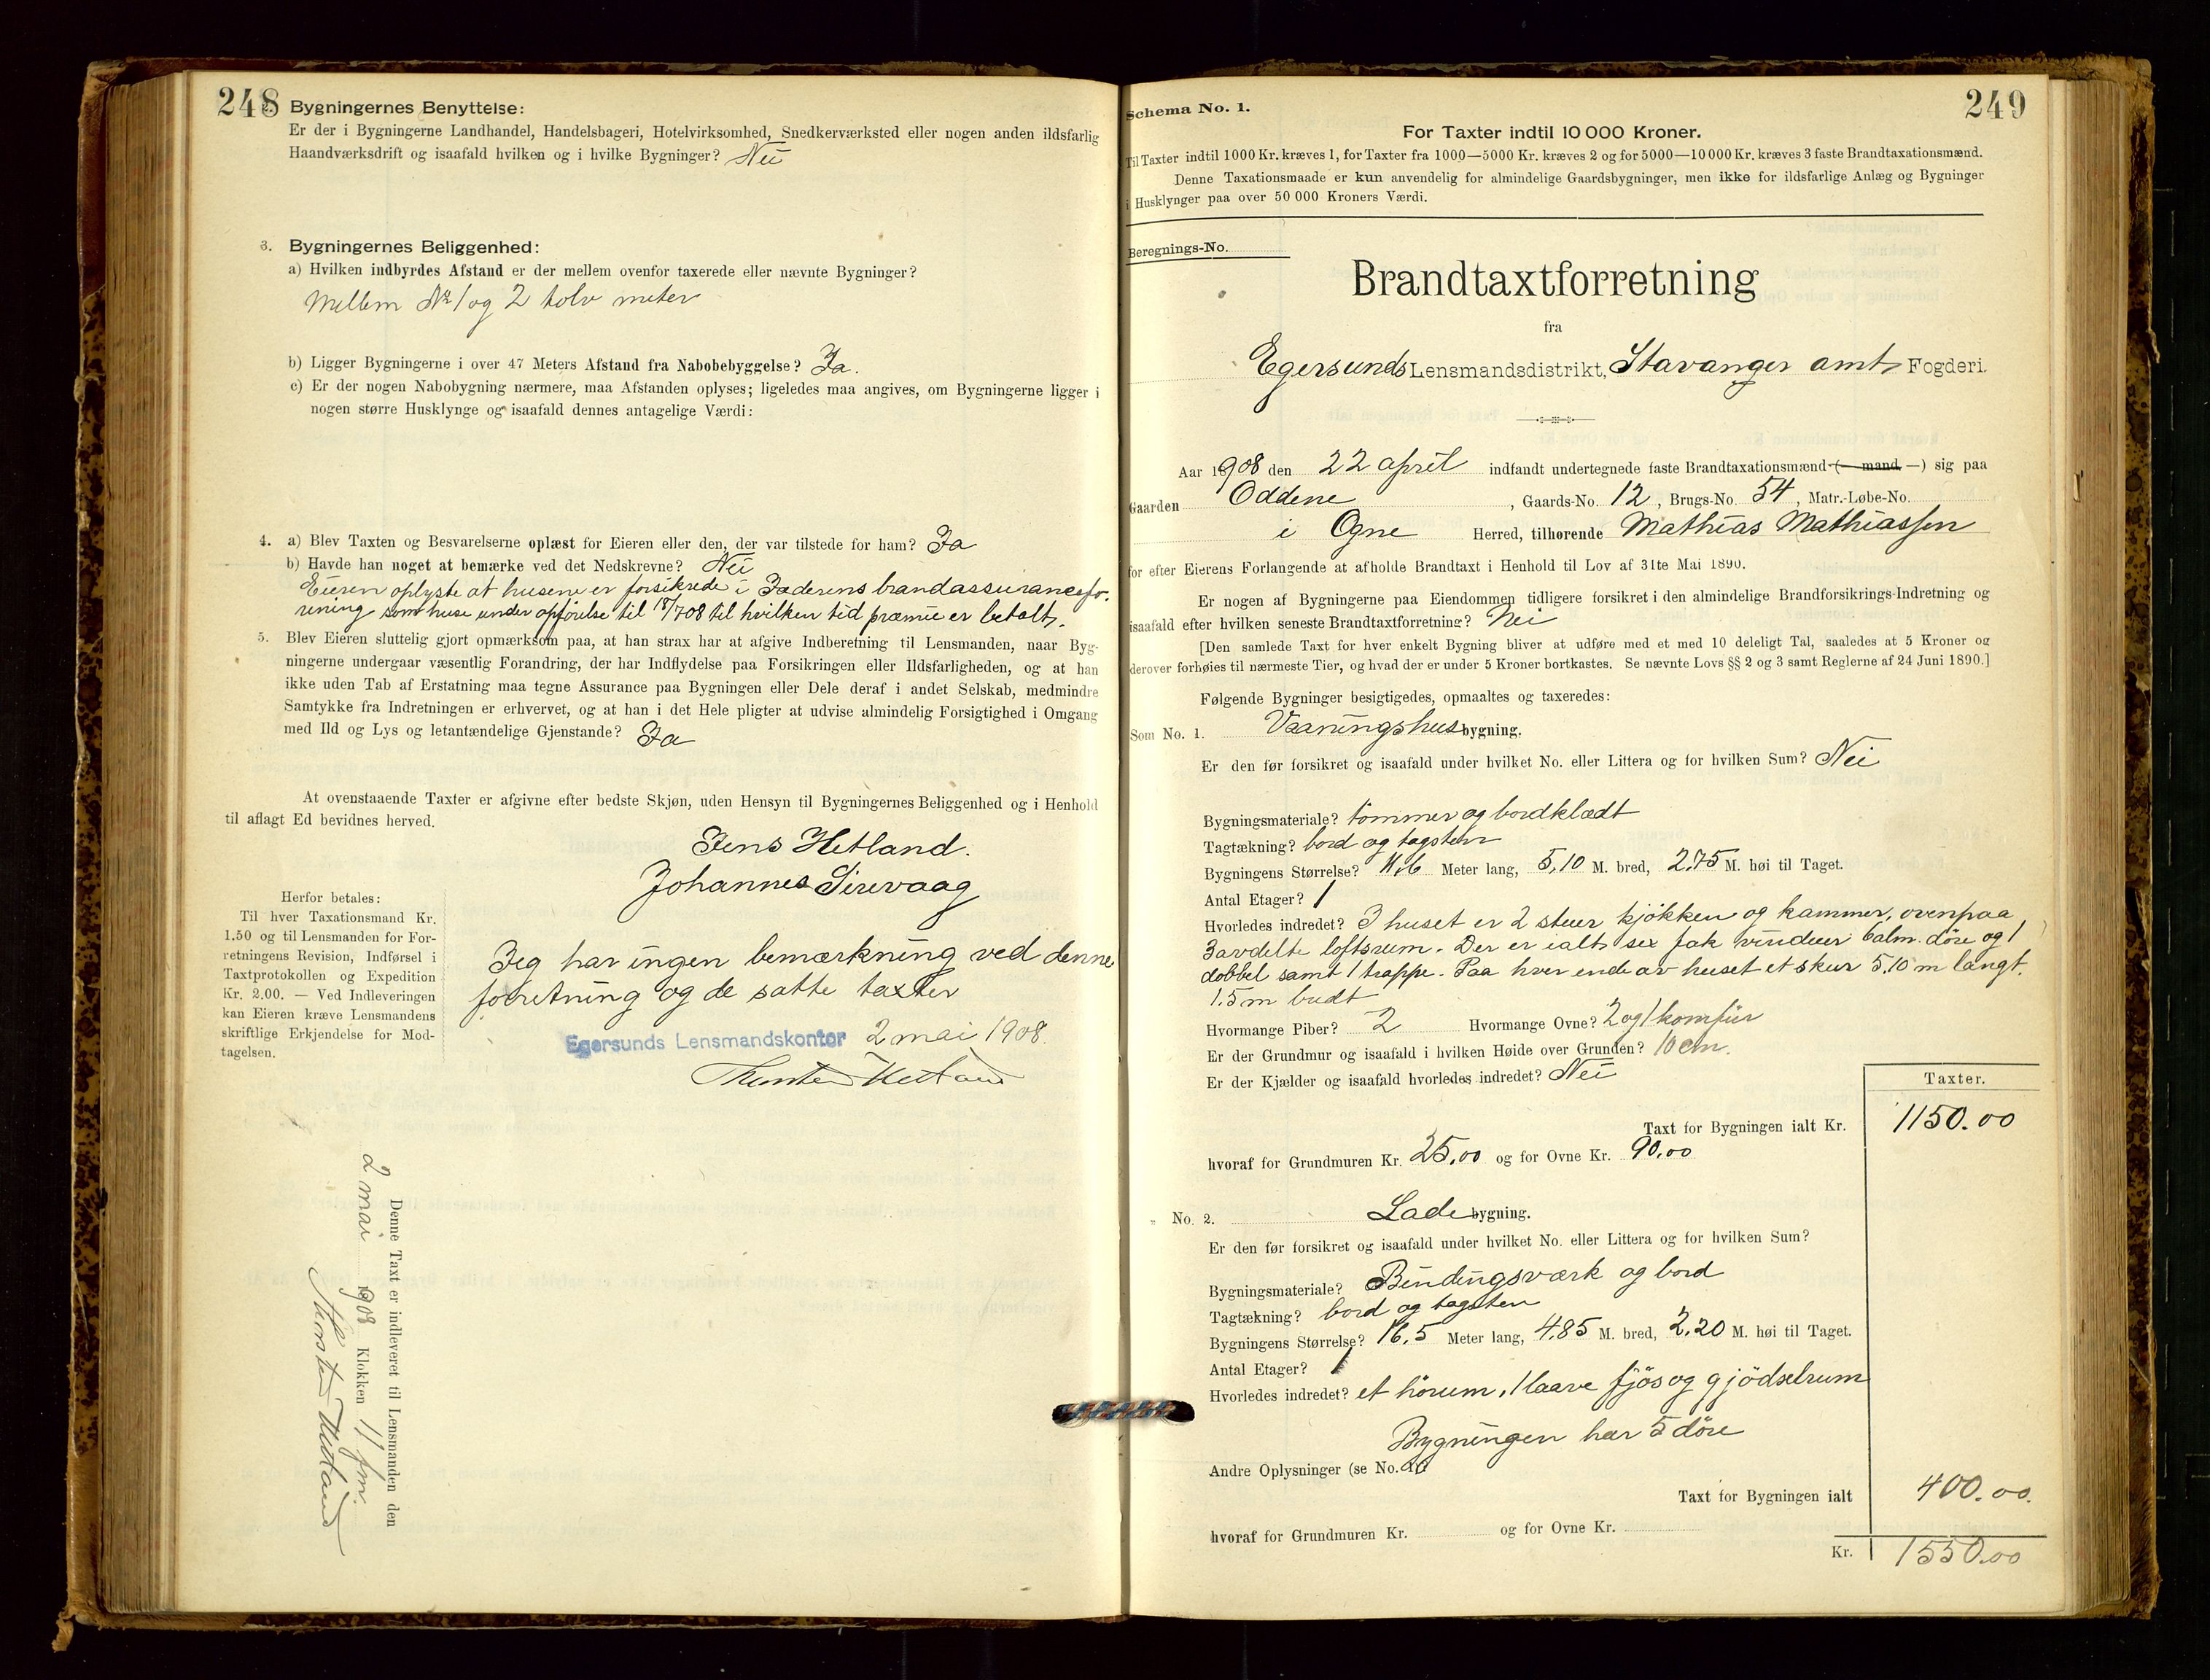 248
2. Bygningernes Benyttelse:
Er der i Bygningerne Landhandel, Handelsbageri, Hotelvirksomhed, Snedkerværksted eller nogen anden ildsfarlig
Haandværksdrift og isaafald hvilken og i hvilke Bygninger? Nei
3. Bygningernes Beliggenhed:
a) Hvilken indbyrdes Afstand er der mellem ovenfor taxerede eller nævnte Bygninger?
Mellem No 1 og 2 tolv meter
b) Ligger Bygningerne i over 47 Meters Afstand fra Nabobebyggelse? Ja.
c) Er der nogen Nabobygning nærmere, maa Afstanden oplyses; ligeledes maa angives, om Bygningerne ligger i
nogen større Husklynge og isaafald dennes antagelige Værdi:
4. a) Blev Taxten og Besvarelserne oplæst for Eieren eller den, der var tilstede for ham? Ja
b) Havde han noget at bemærke ved det Nedskrevne? Nei
Eieren oplyste at husene er forsikrede i Jæderens brandassurancefo-
rening som huse under opførelse til 18/7 08 til hvilken tid præmie er betalt.
5. Blev Eieren sluttelig gjort opmærksom paa, at han strax har at afgive Indberetning til Lensmanden, naar Byg-
ningerne undergaar væsentlig Forandring, der har Indflydelse paa Forsikringen eller Ildsfarligheden, og at han
ikke uden Tab af Erstatning maa tegne Assurance paa Bygningen eller Dele deraf i andet Selskab, medmindre
Samtykke fra Indretningen er erhvervet, og at han i det Hele pligter at udvise almindelig Forsigtighed i Omgang
med Ild og Lys og letantændelige Gjenstande? Ja
At ovenstaaende Taxter er afgivne efter bedste Skjøn, uden Hensyn til Bygningernes Beliggenhed og i Henhold
til aflagt Ed bevidnes herved.
Jens Hetland.
Johannes Sirevaag
Herfor betales:
Til hver Taxationsmand Kr.
1.50 og til Lensmanden for For-
retningens Revision, Indførsel i
Taxtprotokollen og Expedition
Kr. 2.00. — Ved Indleveringen
kan Eieren kræve Lensmandens
skriftlige Erkjendelse for Mod-
tagelsen.
Jeg har ingen bemærkning ved denne
forretning og de satte taxter
Egersunds Lensmandskontor 2 mai 1908.
Thorsten Hetland
Denne Taxt er indleveret til Lensmanden den
2 mai 1908 Klokken 11 fm.
Thorsten Hetland
249
Schema No. 1.
For Taxter indtil 10 000 Kroner.
Til Taxter indtil 1000 Kr. kræves 1, for Taxter fra 1000—5000 Kr. kræves 2 og for 5000—10 000 Kr. kræves 3 faste Brandtaxationsmænd.
Denne Taxationsmaade er kun anvendelig for almindelige Gaardsbygninger, men ikke for ildsfarlige Anlæg og Bygninger
i Husklynger paa over 50 000 Kroners Værdi.
Beregnings-No.
Brandtaxtforretning
fra
Egersunds Lensmandsdistrikt, Stavanger amts Fogderi.
Aar 1908 den 22 april indfandt undertegnede faste Brandtaxationsmænd (— mand —) sig paa
Gaarden Oddene, Gaards-No. 12, Brugs-No. 54, Matr.-Løbe-No.
i Ogne Herred, tilhørende Mathias Mathiassen
for efter Eierens Forlangende at afholde Brandtaxt i Henhold til Lov af 31te Mai 1890.
Er nogen af Bygningerne paa Eiendommen tidligere forsikret i den almindelige Brandforsikrings-Indretning og
isaafald efter hvilken seneste Brandtaxtforretning? Nei
[Den samlede Taxt for hver enkelt Bygning bliver at udføre med et med 10 deleligt Tal, saaledes at 5 Kroner og
derover forhøies til nærmeste Tier, og hvad der er under 5 Kroner bortkastes. Se nævnte Lovs §§ 2 og 3 samt Reglerne af 24 Juni 1890.]
Følgende Bygninger besigtigedes, opmaaltes og taxeredes:
Som No. 1. Vaaningshusbygning.
Er den før forsikret og isaafald under hvilket No. eller Littera og for hvilken Sum? Nei
Bygningsmateriale? tømmer og bordklædt
Tagtækning? bord og tagsten
Bygningens Størrelse? 11,6 Meter lang, 5,10 M. bred, 2,75 M. høi til Taget.
Antal Etager? 1
Hvorledes indredet? I huset er 2 stuer kjøkken og kammer, ovenpaa
3 avdelte loftsrum. Der er ialt sex fak vinduer 6 alm. døre og 1
dobbel samt 1 trappe. Paa hver ende av huset et skur 5,10 m langt.
1.5 m bredt
Hvormange Piber? 2 Hvormange Ovne? 2 og 1 komfür
Er der Grundmur og isaafald i hvilken Høide over Grunden? 10 cm.
Er der Kjælder og isaafald hvorledes indredet? Nei
Taxter.
Taxt for Bygningen ialt Kr. 1150.00
hvoraf for Grundmuren Kr. 25,00 og for Ovne Kr. 90,00
„ No. 2. Ladebygning.
Er den før forsikret og isaafald under hvilket No. eller Littera og for hvilken Sum?
Bygningsmateriale? Bindingsværk og bord
Tagtækning? bord og tagsten
Bygningens Størrelse? 16,5 Meter lang, 4,85 M. bred, 2,20 M. høi til Taget.
Antal Etager? 1
Hvorledes indredet? et hørum, 1 laave fjøs og gjødselrum
Bygningen har 5 døre
Andre Oplysninger (se No. 1)
Taxt for Bygningen ialt 400.00.
hvoraf for Grundmuren Kr. og for Ovne Kr.
Kr. 1550.00